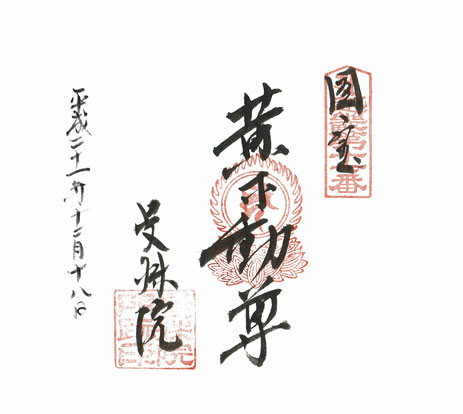 国宝
黄不動尊
曼殊院
平成二十一年十二月十八日